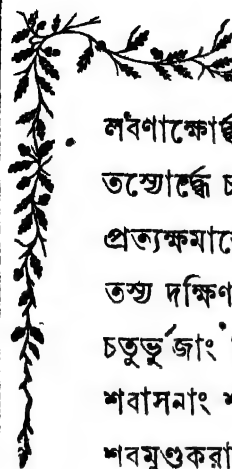 লবণাক্ষোর্দ্ধ
তস্যোর্দ্ধে চ
প্রত্যক্ষমা
তস্য দক্ষিণ
চতুর্ভুজাং
শবাসনাং শ
শবমুণ্ডকরা